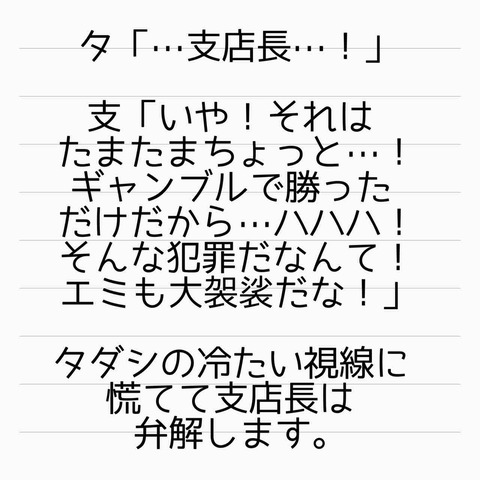 タ「…支店長…！」
支「いや！それは
たまたまちょっと…！
ギャンブルで勝った
だけだから…ハハハ！
そんな犯罪だなんて！
エミも大袈裟だな！」
タダシの冷たい視線に
慌てて支店長は
弁解します。